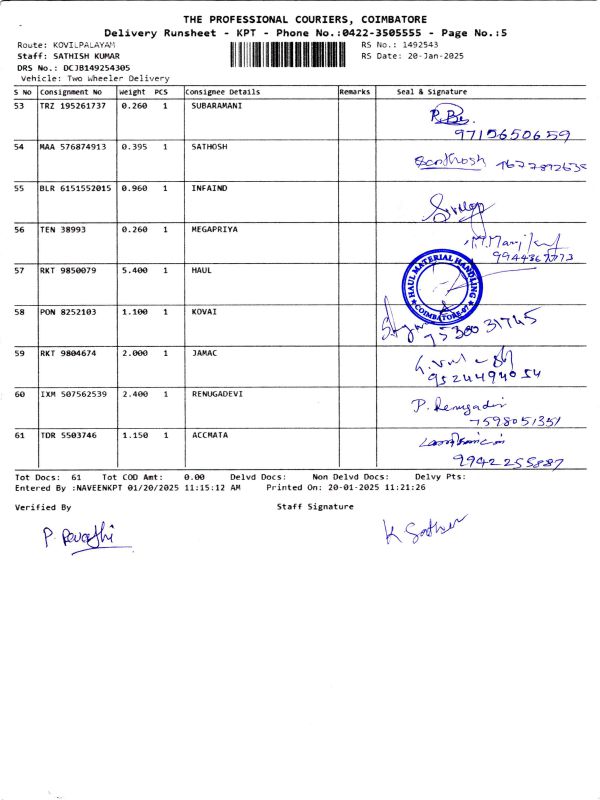 THE PROFESSIONAL COURIERS, COIMBATORE
Delivery Runsheet - KPT - Phone No.:0422-3505555 - Page No.:5
Route: KOVILPALAYAM RS No.: 1492543
Staff: SATHISH KUMAR RS Date: 20-Jan-2025
DRS No.: DCJB149254305
Vehicle: Two Wheeler Delivery
S No Consignment No Weight PCS Consignee Details Remarks Seal & Signature
53 TRZ 195261737 0.260 1 SUBARAMANI
9715650659
54 MAA 576874913 0.395 1 SATHOSH
Santhosh
55 BLR 6151552015 0.960 1 INFAIND
56 TEN 38993 0.260 1 MEGAPRIYA
57 RKT 9850079 5.400 1 HAUL
HAUL MATERIAL HANDLING
COIMBATORE
58 PON 8252103 1.100 1 KOVAI
7530031745
59 RKT 9804674 2.000 1 JAMAC
9524494054
60 IXM 507562539 2.400 1 RENUGADEVI
P. Renugadevi
7598051351
61 TDR 5503746 1.150 1 ACCMATA
9942255887
Tot Docs: 61 Tot COD Amt: 0.00 Delvd Docs: Non Delvd Docs: Delvy Pts:
Entered By :NAVEENKPT 01/20/2025 11:15:12 AM Printed On: 20-01-2025 11:21:26
Verified By Staff Signature
P. Revathi